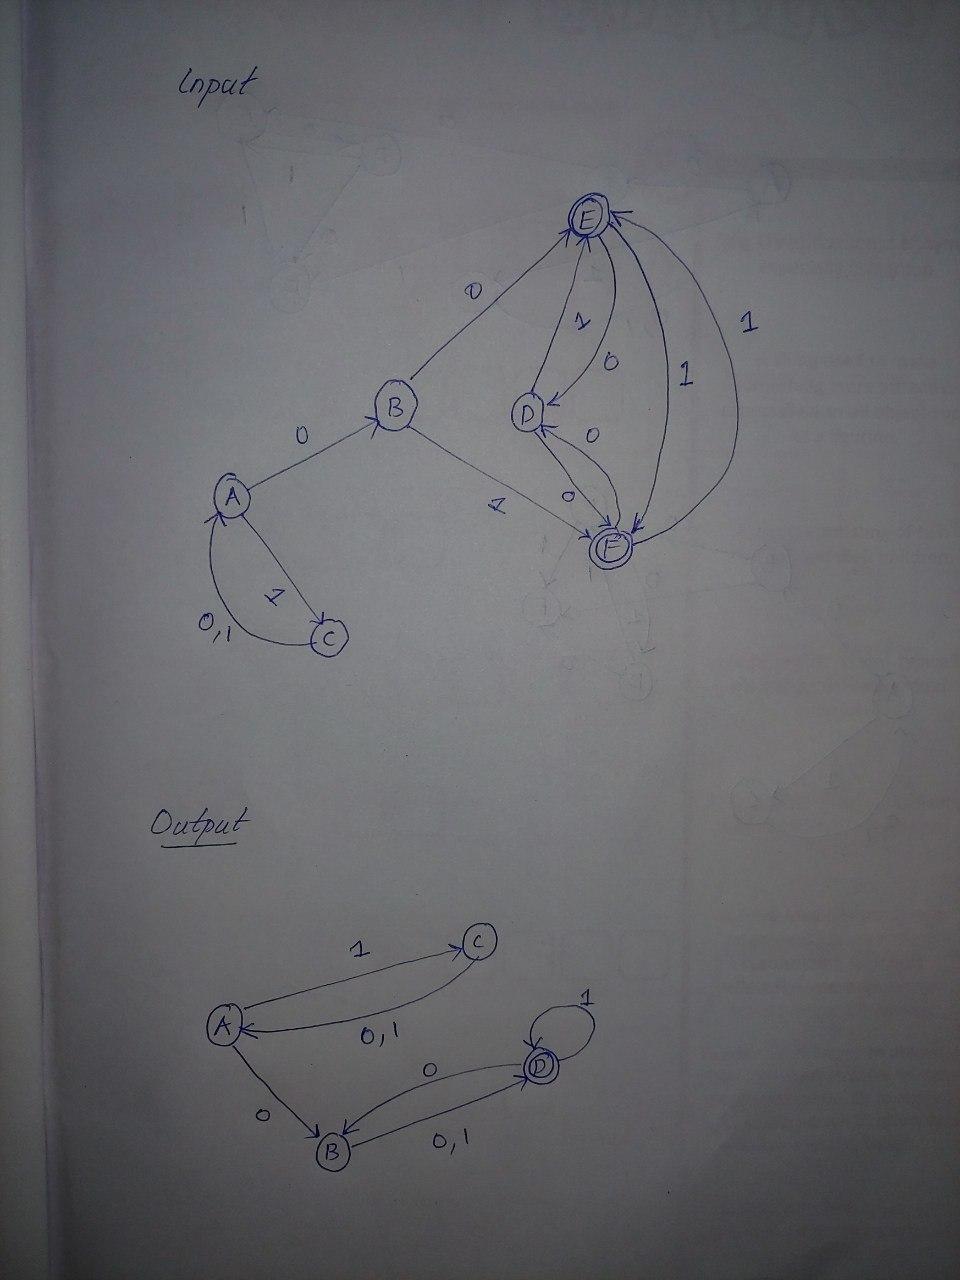 Input
E
0
1
1
0
1
B
D
0
0
A
0
1
F
1
0,1
C
Output
1
C
A
0,1
1
0
D
0
B
0,1